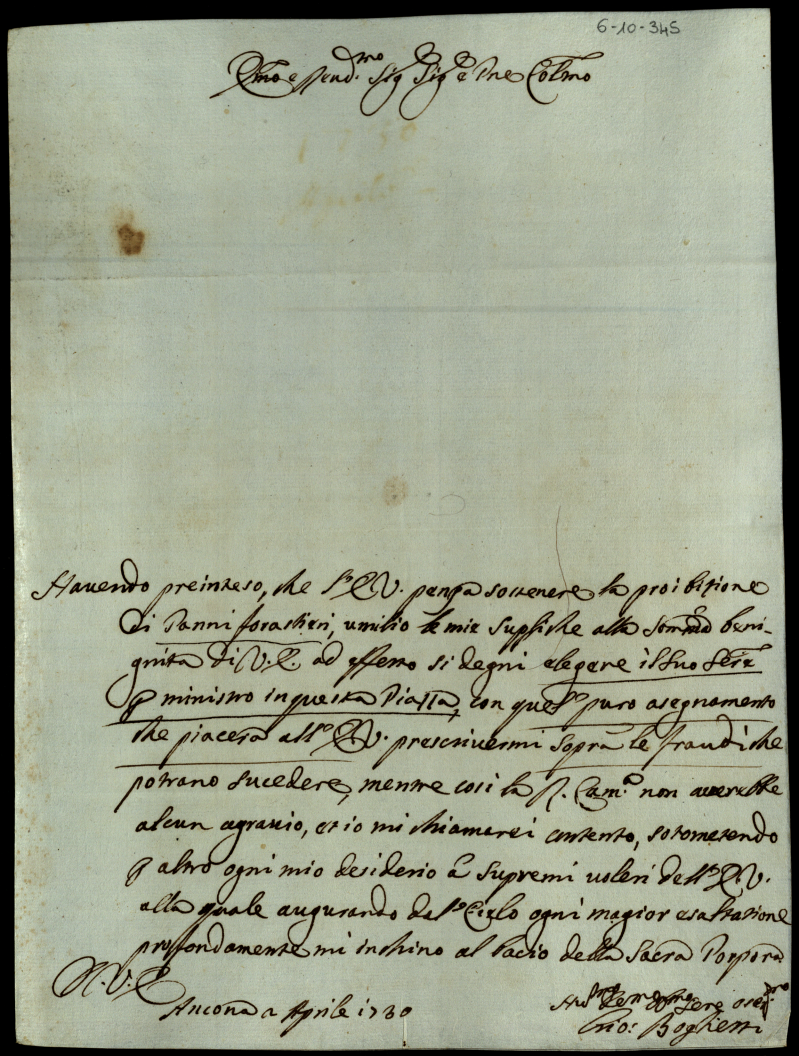 6-10-345
Emo e Rend.mo Sig Sig e Pne Colmo
Havendo preinteso, che l'E.V. pensa sostenere la proibizione
di Panni forastieri, umilio le mie supliche alla somma beni-
gnita di V.E. ad effetto si degni elegere il suo Serre
p ministro in questa Piazza, con quel puro asegnamento
che piacerà all'E.V. prescrivermi sopra le fraudi che
potrano sucedere, mentre cosi la R. Cam.a non averebbe
alcun agravio, et io mi chiamarei contento, sotometendo
p altro ogni mio desiderio a supremi voleri dell'E.V.
alla quale augurando dal Cielo ogni magior esaltatione
profondamente mi inchino al bacio della Sacra Porpora
D.V.E.
Ancona a Aprile 1730
Gio: Boglietti